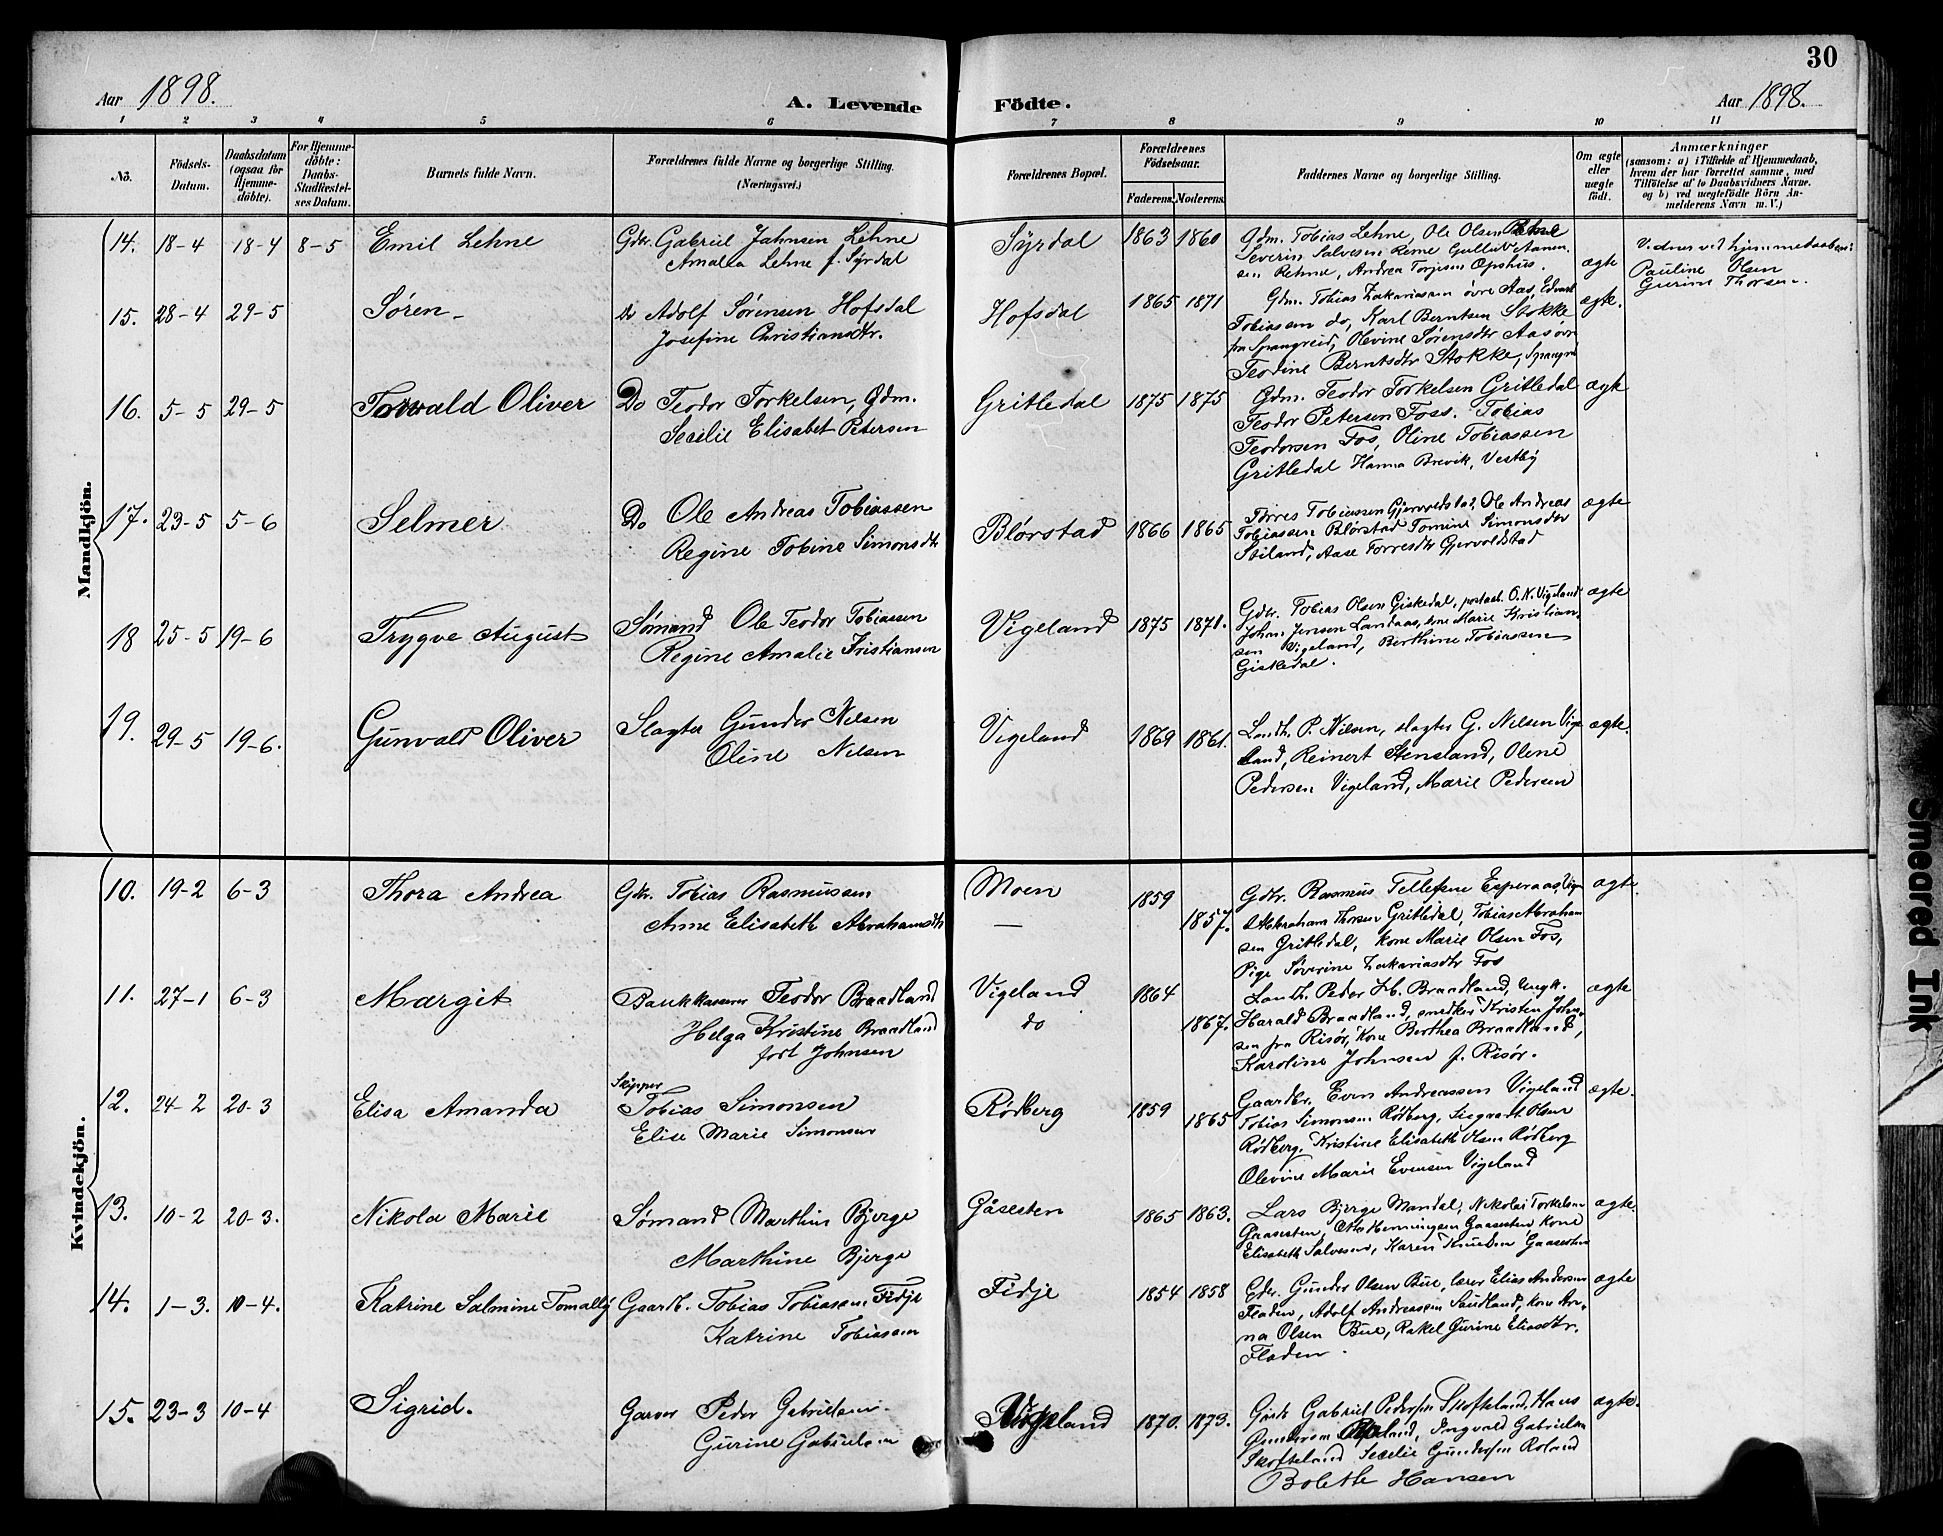 30
Aar 1898.
A. Levende Födte.
Aar 1898.
1 2 3 4 5 6 7 8 9 10 11
No.
Födsels-Datum.
Daabsdatum (ogsaa for Hjemme-döbte).
For Hjemme-döbte: Daabs-Stadfæstel-ses Datum.
Barnets fulde Navn.
Forældrenes fulde Navne og borgerlige Stilling.
(Næringsvei.)
Forældrenes Bopæl.
Forældrenes Födselsaar.
Faderens. Moderens.
Faddernes Navne og borgerlige Stilling.
Om ægte eller uægte födt.
Anmærkninger
(saasom: a) i Tilfælde af Hjemmedaab,
hvem der har forrettet samme, med
Tilföielse af to Daabsvidners Navne,
og b) ved uægtefödte Börn An-
melderens Navn m. V.)
Mandkjön.
14. 18-4 18-4 8-5 Emil Lehne
Gdbr. Gabriel Jahnsen Lehne
Amalia Lehne f. Syrdal
Syrdal 1863 1860
Gdm. Tobias Lehne, Ole Olsen Rehne
Severin Salvesen Reme Gulluv Aanen-
sen Rehme, Andrea Torjesen Opshus.
ægte
Vidner ved hjemmedaaben:
Pauline Olsen
Gurine Thorsen.
15. 28-4 29-5 Søren
Do Adolf Sørensen Hofsdal
Josefine Christiansdtr.
Hofsdal 1865 1871
Gdm. Tobias Zakariassen øvre Aas, Edvard
Tobiassen do, Karl Berntsen Stokke
fra Spangreid, Olevine Sørensdtr Aas øvre
Teodine Berntsdtr Stokke, Spangr
ægte.
16. 5-5 29-5 Torvald Oliver
Do Teodor Torkelsen, Gdm.
Secilie Elisabet Petersen
Gritledal 1875 1875
Gdm. Teodor Torkelsen Gritledal
Teodor Petersen Foss. Tobias
Teodorsen Fos, Oline Tobiassen
Gritledal Hanna Brevik, Vestby
ægte
17. 23-5 5-6 Selmer
Do Ole Andreas Tobiassen
Regine Tobine Simonsdtr
Blørstad 1866 1865
Torres Tobiassen Gjervoldstad, Ole Andreas
Tobiassen Blørstad Tomine Simonsdtr
Stiland, Aase Torresdtr Gjervoldstad
ægte
18 25-5 19-6 Trygve August
Sømand Ole Teodor Tobiassen
Regine Amalie Kristiansen
Vigeland 1875 1871.
Gdbr. Tobias Olsen Giskedal, O. N. Vigeland
Johan Jensen Landaas, kone Marie Kristian-
sen Vigeland, Berthine Tobiassen
Giskedal.
ægte
19. 29-5 19-6. Gunvald Oliver
Slagter Gunder Nilsen
Oline Nilsen
Vigeland 1869 1861.
Landh. P. Nilsen, slagter G. Nilsen Vige-
land, Reinert Stensland, Olene
Pedersen Vigeland, Marie Pedersen
ægte.
Kvindekjön.
10. 19-2 6-3 Thora Andrea
Gdbr. Tobias Rasmussen
Anne Elisabeth Abrahamsdtr
Moen
—
1859 1857.
Gdbr. Rasmus Tellefsen Esperaas,
Abraham Thorsen Gritledal, Tobias Abraham
sen Gritledal, kone Marie Olsen Fos,
Pige Søverine Zakariasdtr Fos
ægte.
11. 27-1 6-3 Margit
Bankkasserer Teodor Braadland
Helga Kristine Braadland
født Johnsen
Vigeland
do
1864 1867.
Landh. Peder Braadland, Ungk.
Harald Braadland, snedker Kristen John-
sen fra Risör, Kone Berthea Braadland,
Karoline Johnsen f. Risör.
ægte
12. 24-2 20-3 Elisa Amanda
Skipper
Tobias Simonsen
Elise Marie Simonsen
Rödberg 1859 1865
Gaardbr. Even Andreassen Vigeland
Tobias Simonsen Rödberg, Siegvardt Olsen
Rödberg, Kristine Elisabeth Olsen Rödberg
Olevine Marie Evensen Vigeland
ægte.
13. 10-2 20-3. Nikola Marie
Sømand Marthin Bjerge
Marthine Bjerge
Gåsesten 1865 1863.
Lars Bjerge Mandal, Nikolai Torkelsen
Gaasesten, Otto Henningsen Gaasesten, Kone
Elisabeth Salvesen, Karen Knudsen Gaasesten
ægte
14. 1-3. 10-4. Katrine Salmine Tomally
Gaardb. Tobias Tobiassen Fidje
Katrine Tobiassen
Fidje 1854 1858
Gdbr. Gunder Olsen Bue, lærer Elias Andersen
Fladen, Adolf Andreassen Saudland, kone An-
na Olsen Bue, Rakel Gurine Eliasdtr.
Fladen.
ægte
15. 23-3 10-4 Sigrid.
Garver Peder Gabrielsen
Gurine Gabrielsen
Vigeland 1870. 1873.
Gdbr Gabriel Pedersen Skofteland, Hans
Gundersen Roland, Ingvald Gabrielsen
Skofteland Secelie Gundersen Roland
Bolette Hansen
ægte.
Smeared Ink